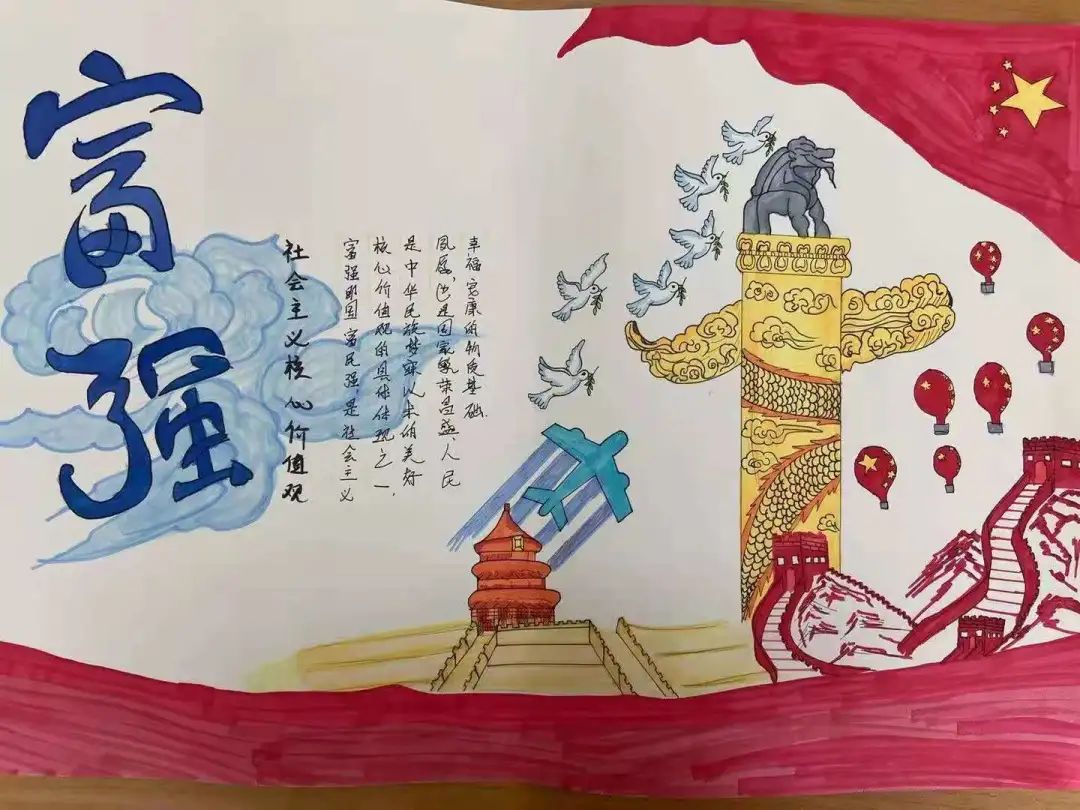 富强
社会主义核心价值观
富强即国富民强,是社会主义
核心价值观的具体体现之一,
是中华民族梦寐以求的美好
夙愿,也是国家繁荣昌盛、人民
幸福宽康的物质基础.